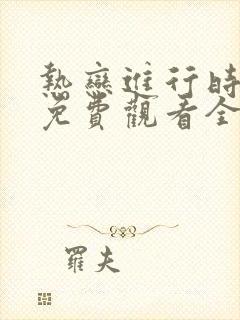 熱戀進行時
免費觀看全
羅夫